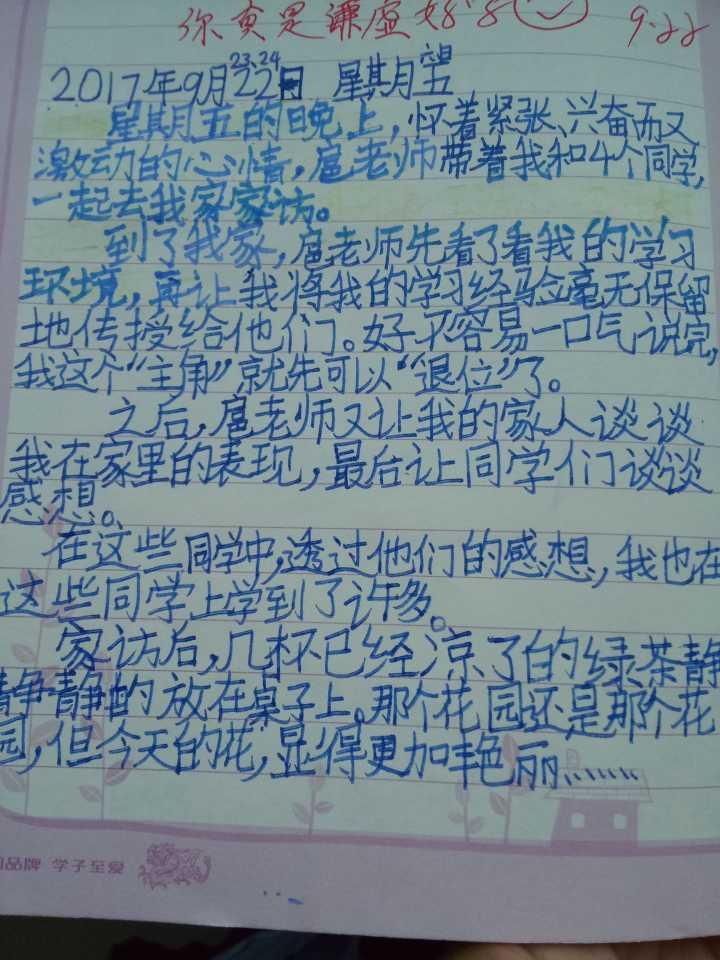 你真是谦虚好学 9.22
23、24
2017年9月22日 星期五
星期五的晚上，怀着紧张、兴奋而又
激动的心情，扈老师带着我和4个同学，
一起去我家家访。
到了我家，扈老师先看了看我的学习
环境，再让我将我的学习经验毫无保留
地传授给他们。好不容易一口气说完，
我这个“主角”就先可以“退位”了。
之后，扈老师又让我的家人谈谈
我在家里的表现，最后让同学们谈谈
感想。
在这些同学中，透过他们的感想，我也在
这些同学上学到了许多。
家访后，几杯已经凉了的绿茶静
静静的放在桌子上。那个花园还是那个花
园，但今天的花，显得更加艳丽、、、、、、
品牌 学子至爱